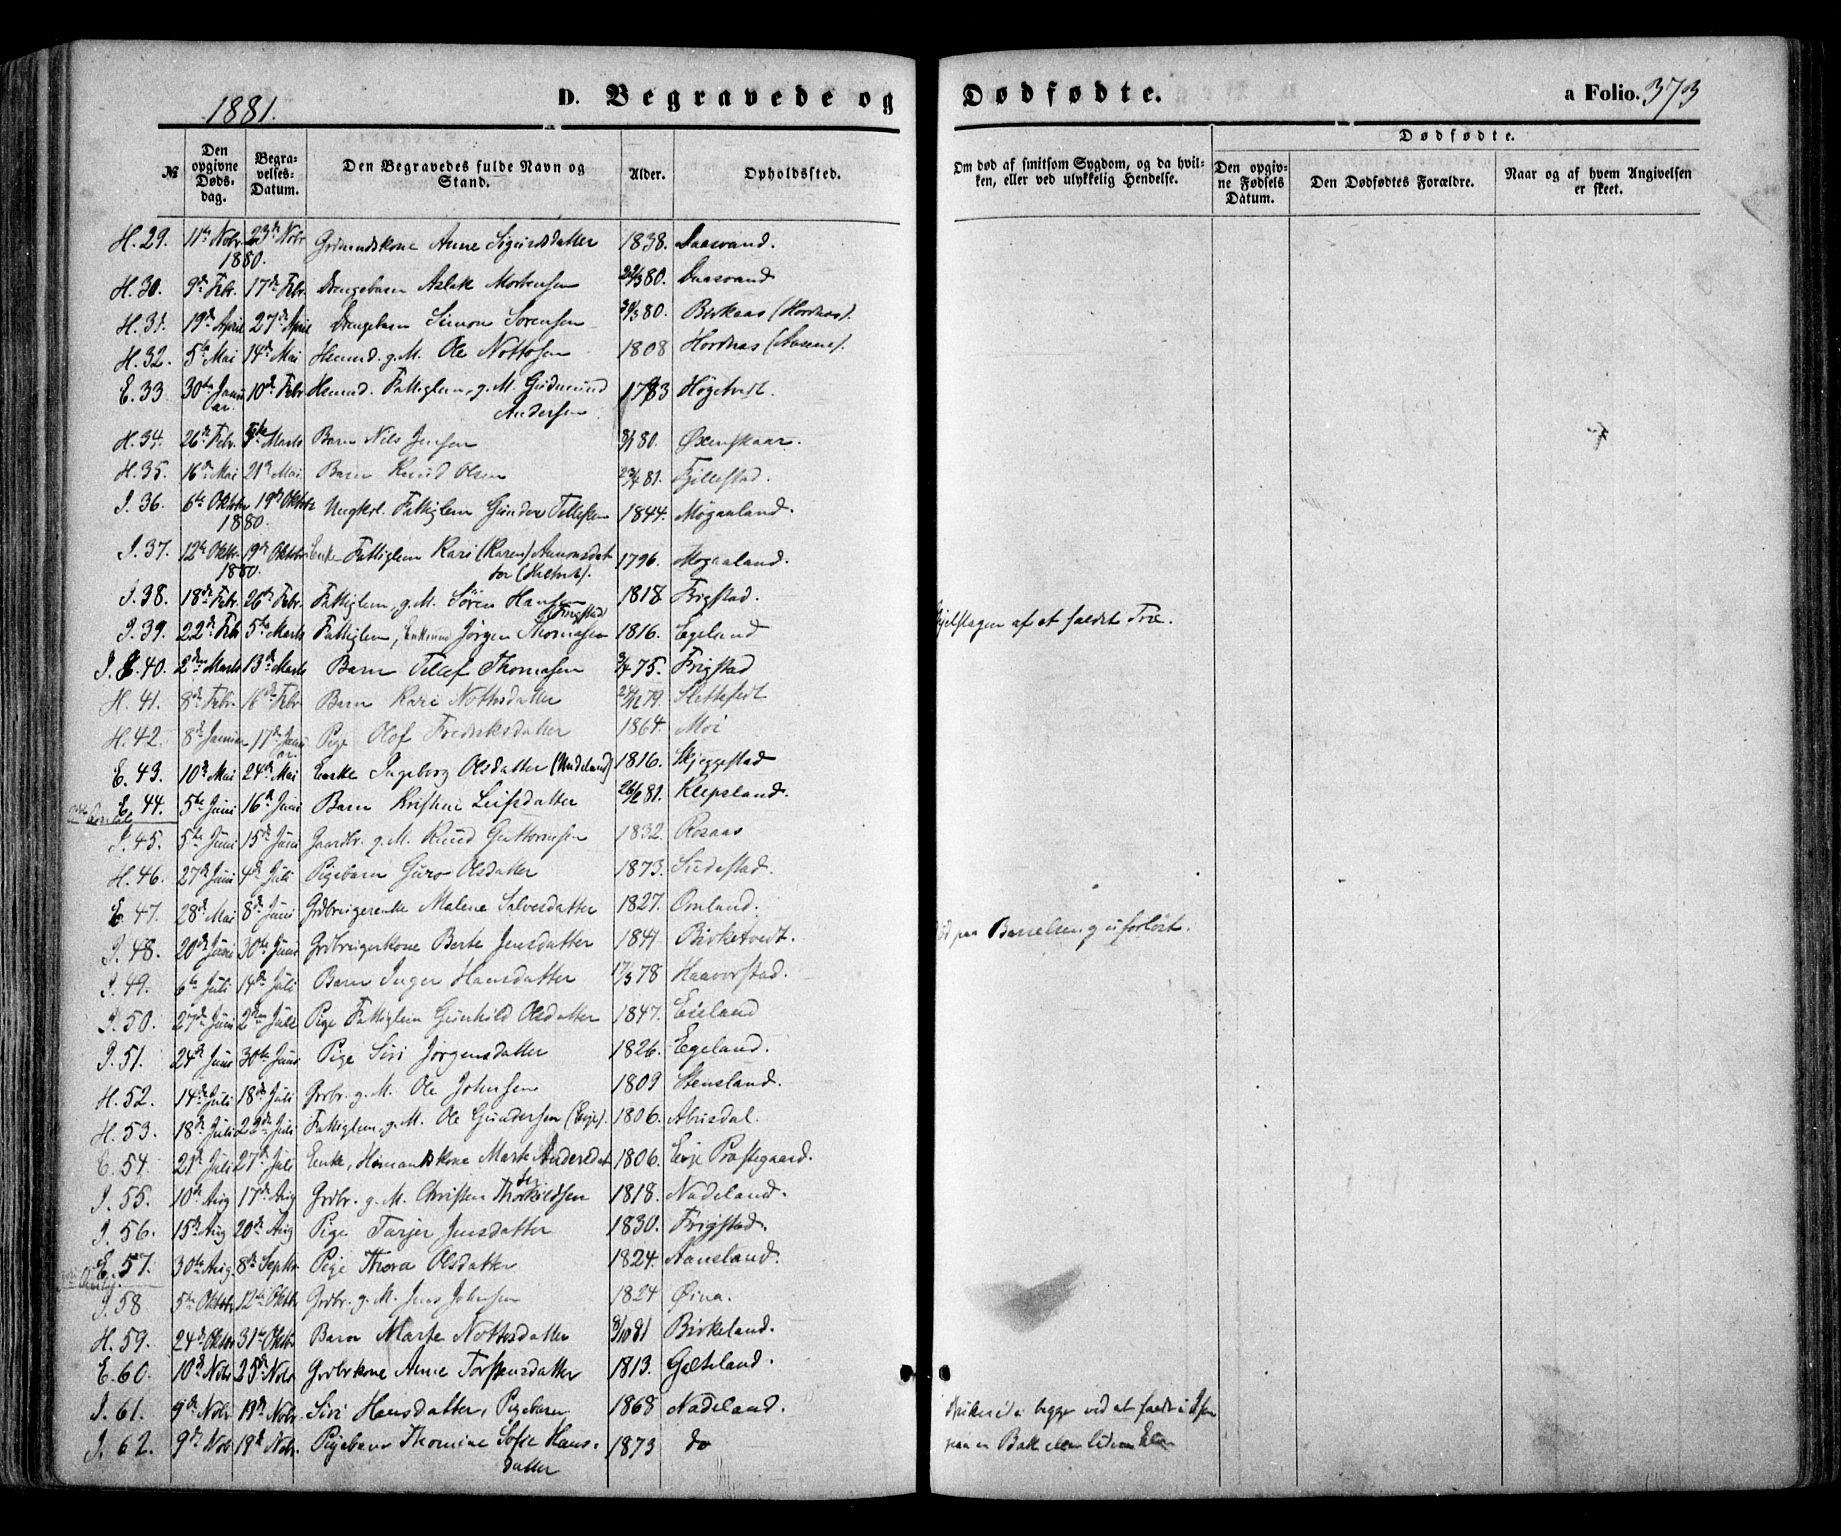 1881.
D. Begravede og Dødfødte.
a Folio. 373
№
Den opgivne Døds-dag.
Begra-velses-Datum.
Den Begravedes fulde Navn og Stand.
Alder.
Opholdssted.
Om død af smitsom Sygdom, og da hvil-ken, eller ved ulykkelig Hendelse.
Dødfødte.
Den opgiv-ne Fødsels Datum.
Den Dødfødtes Forældre.
Naar og af hvem Angivelsen er skeet.
H. 29. 11te Nobr 1880. 23de Nobr Grdmandskone Anne Sigurdsdatter 1838. Daasvand.
H. 30. 9de Febr. 17de Febr. Drengebarn Aslak Mortensen 80. Daasvand
H. 31. 19de April 27de April Drengebarn Simon Sørensen 80. Birkaas (Hordnas).
H. 32. 5te Mai 14de Mai Huusmd. g. M. Ole Nottosen 1808 Hordnas
E. 33. 30te Januar. 10de Febr Huusmd. Fattiglem, g. M. Gudmund Andersen 1783 Høgetvedt.
H. 34. 26de Febr. Marts Barn Nils Jensen 80. Øxenskaar.
H. 35. 16de Mai 21de Mai Barn Knud Olsen 81. Fjellestad.
I. 36. 6te Oktobr 1880. 19de Oktobr Ungkrl. Fattiglem Gunder Tellefsen 1844. Mogaaland.
I. 37. 12te Oktbr. 1880. 19de Oktobr Enke Fattiglem Kari (Karen) Aanonsdatter 1796. Mogaaland.
I. 38. 18de Febr. 26de Febr. Fattiglem, g. M. Søren Hansen (Frigstad) 1818 Frigstad.
I. 39. 22de Feb 5te Marts Fattiglem, Enkmnd Jørgen Thomasen 1816. Egeland ihjelslagen af et faldet Træ.
I. 40. 2den Marts 13de Marts Barn Tellef Thomasen 3/4 75. Frigstad
H. 41. 8de Febr. 16de Febr. Barn Kari Nottosdatter 79. Slettefedt
H. 42. 8de Januar 17de Januar Pige Olof Fredriksdatter 1864. Moi
E. 43. 10de Mai 24de Mai Enke Ingeborg Olsdatter 1816. Skjeggestad
E. 44. 5te Juni 16de Juni Barn Kristine Leifsdatter 81. Klepsland.
I. 45. 5te Juni 15de Juni Gaardbr. g. M. Knud Guttormsen 1832. Rosaas
H. 46. 27de Juni 4de Juli Pigebarn Guro Olsdatter 1873. Sudestad.
E. 47. 28de Mai 8de Juni Grdbrugerenke Malene Salvesdatter 1827. Omland.
I. 48. 20de Juni 30te Juni Grdbrugerkone Berte Jensdatter 1841 Birketvedt. Død paa Barselseng uforløst.
I. 49. 6te Juli 14de Juli Barn Inger Hansdatter 78 Haavorstad.
I. 50. 27de Juni 2den Juli Pige Fattiglem Gunhild Olsdatter 1847. Eieland
I. 51. 24de Juni 30te Juni Pige Siri Jørgensdatter 1826. Egeland.
H. 52. 14de Juli 18de Juli Grdbr. g. M. Ole Johnsen 1809 Stensland.
H. 53. 18de Juli 22de Juli Fattiglem, g. M. Ole Gundersen (Evje). 1806. Abusdal.
E. 54. 21de Juli 27de Juli Enke, Husmandskone Marte Andersdatter 1806. Evje Præstegaard.
I. 55. 10de Aug 17de Aug Grdbr. g. M. Christen Thorkildsen 1818. Nadeland.
I. 56. 15de Aug 20de Aug Pige Tarjer Jensdatter 1830. Frigstad.
E. 57. 30te Aug. 8de Septbr Pige Thora Olsdatter 1824. Aaneland.
I. 58 5te Oktobr 12te Oktbr. Grdbr. g. M. Jens Johnsen 1824 Øina.
H. 59. 24de Oktbr 31te Oktbr Barn Marte Nottosdatter 8/10 81 Birkeland.
E. 60. 10de Nobr 25de Nobr Grdbrkone Anne Torstensdatter 1813. Gauteland.
I. 61. 9de Nobr 19de Nobr. Siri Hansdatter, Pigebarn 1868 Nadeland. begge ved at falde i
I. 62. 9de Nob 18de Nobr. Pigebarn Thomine Sofie Hansdatter 1873 do paa en